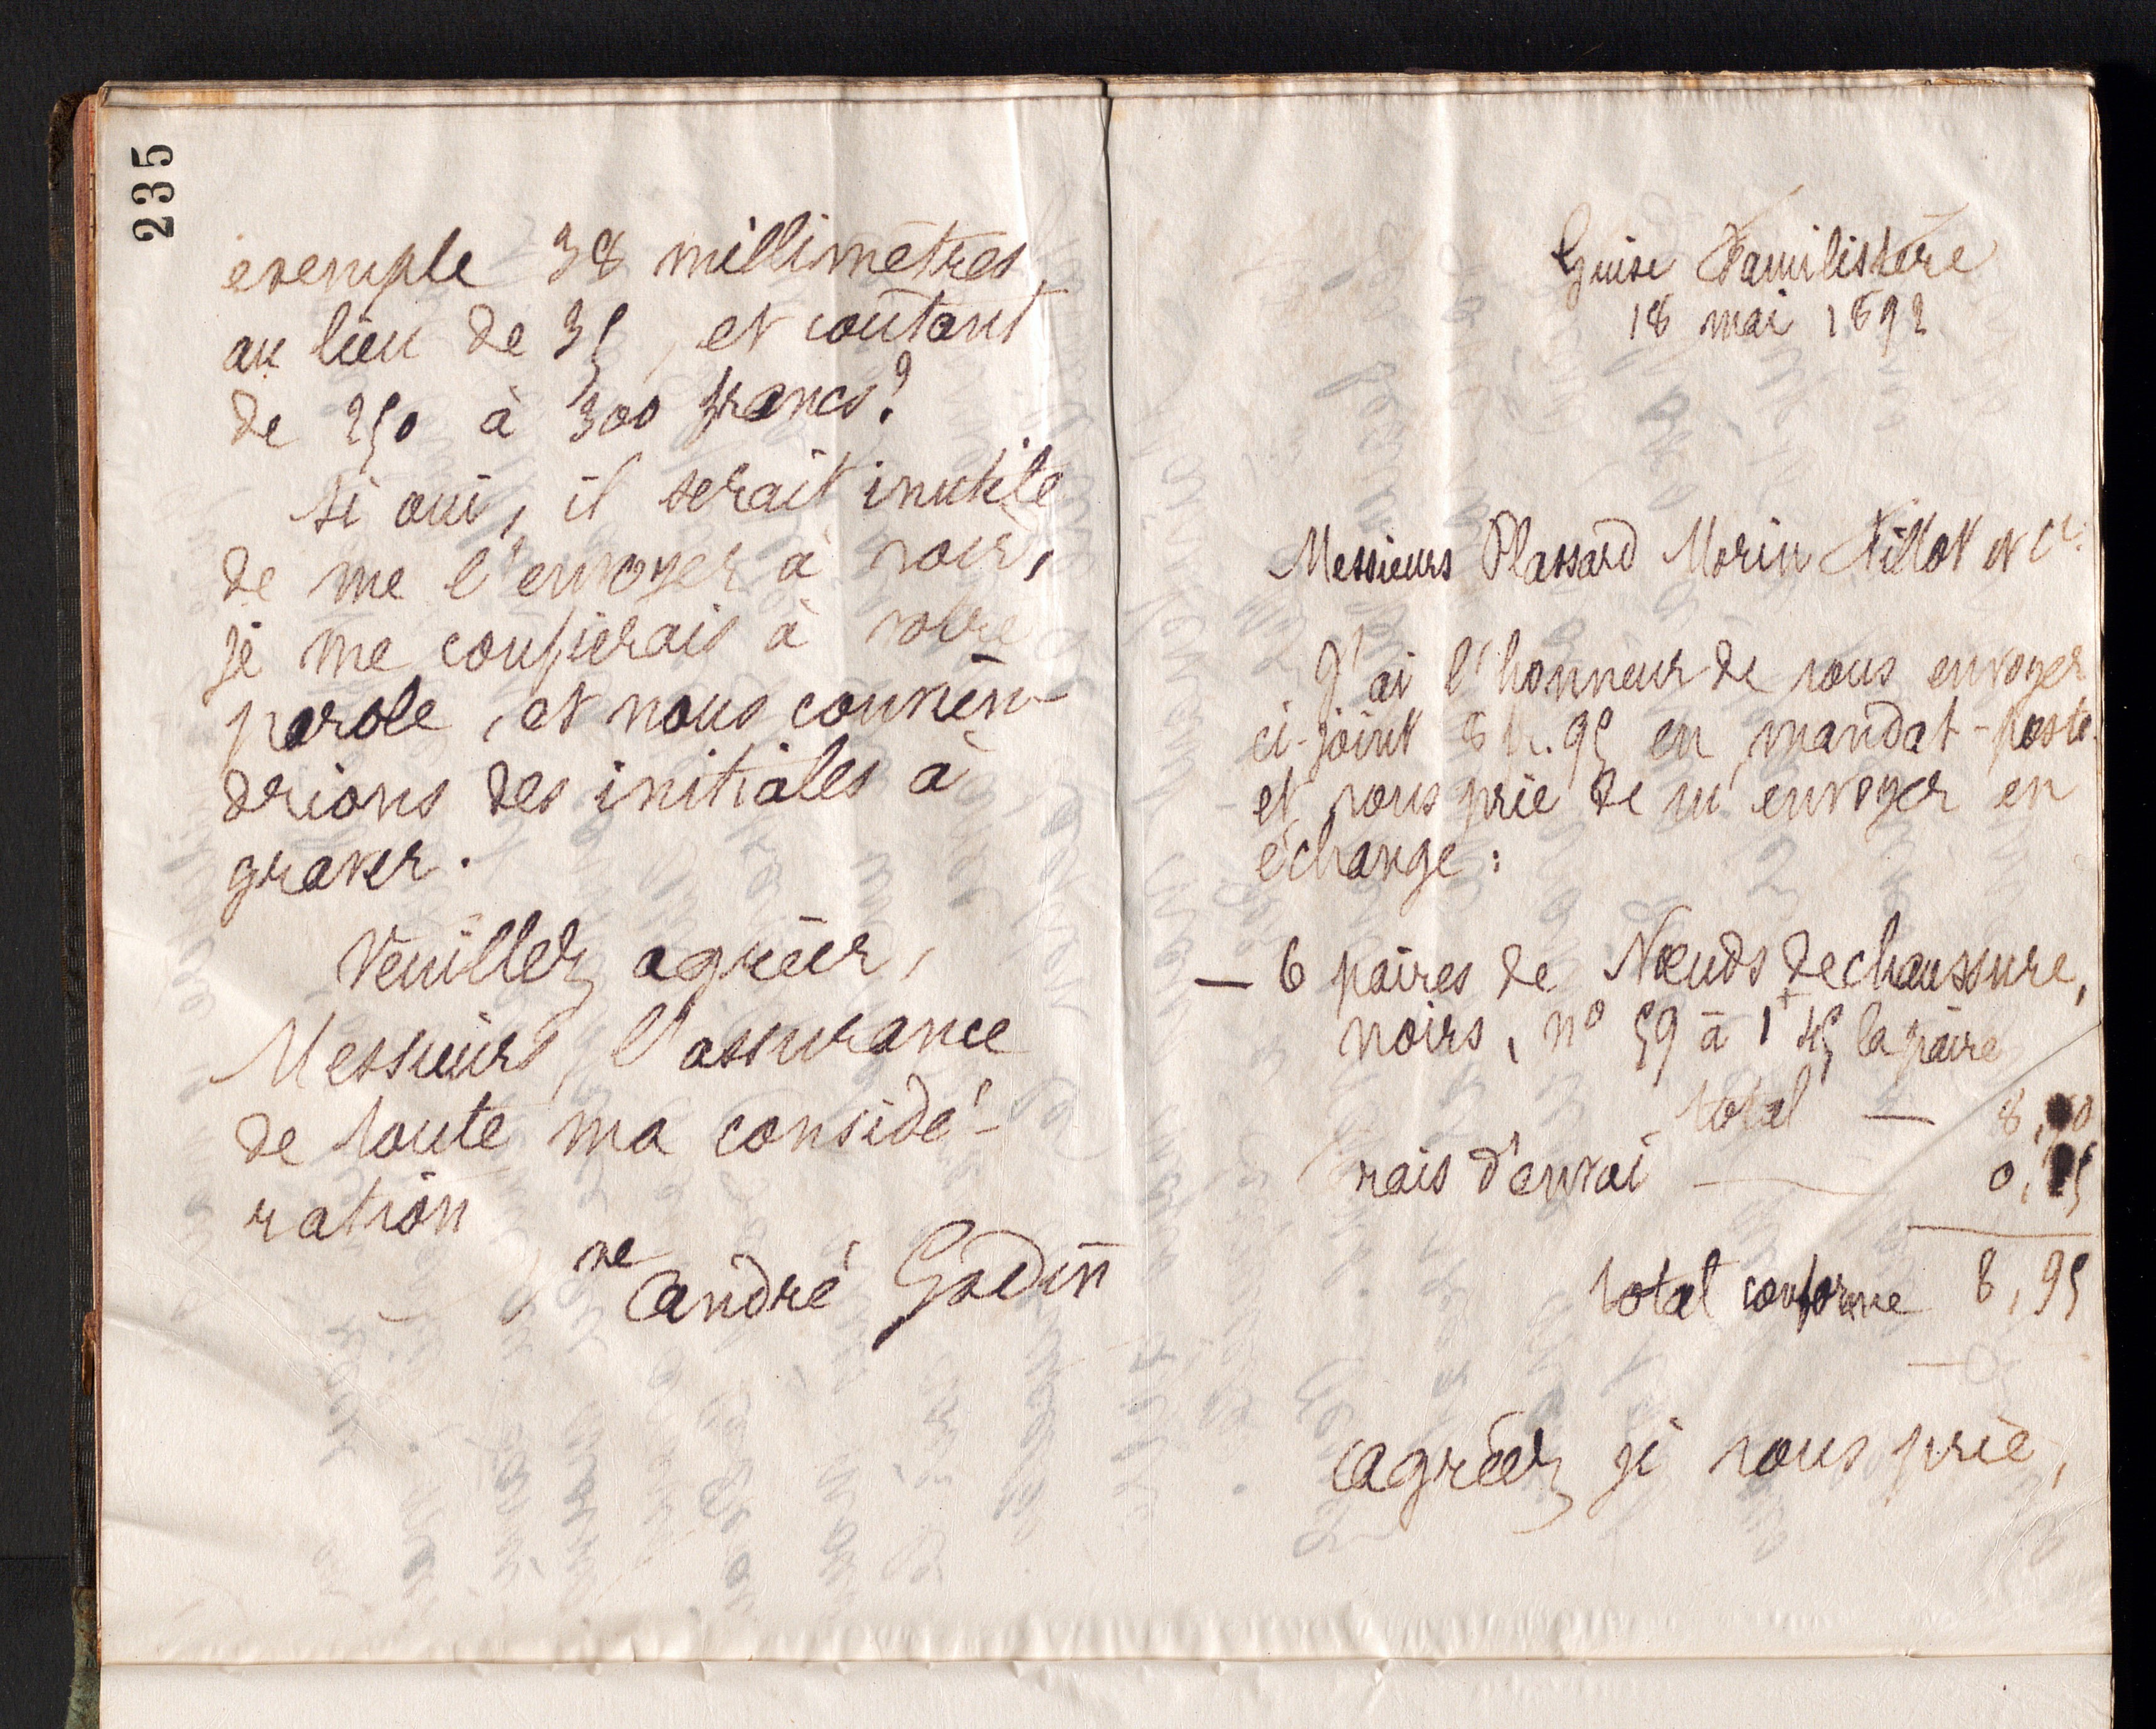 235
exemple 38 millimètres,
au lieu de 35, et coûtant
de 250 à 300 francs?
Si oui, il serait inutile
de me l'envoyer à voir,
je me confierais à votre
parole, et nous convien-
drions des initiales à
graver.
Veuillez agréer,
Messieurs, l'assurance
de toute ma considé-
ration
ve André Godin
Guise Familistère
18 mai 1892
Messieurs Plassard Morin Fillot et Cie
J'ai l'honneur de vous envoyer
ci-joint 8 fr. 95 en mandat-poste
et vous prie de m'envoyer en
échange:
— 6 paires de Nœuds de chaussure,
noirs, no 59 à 1f 45 la paire
total —
rais d'envoi —
total conforme 8,95
agréez je vous prie,